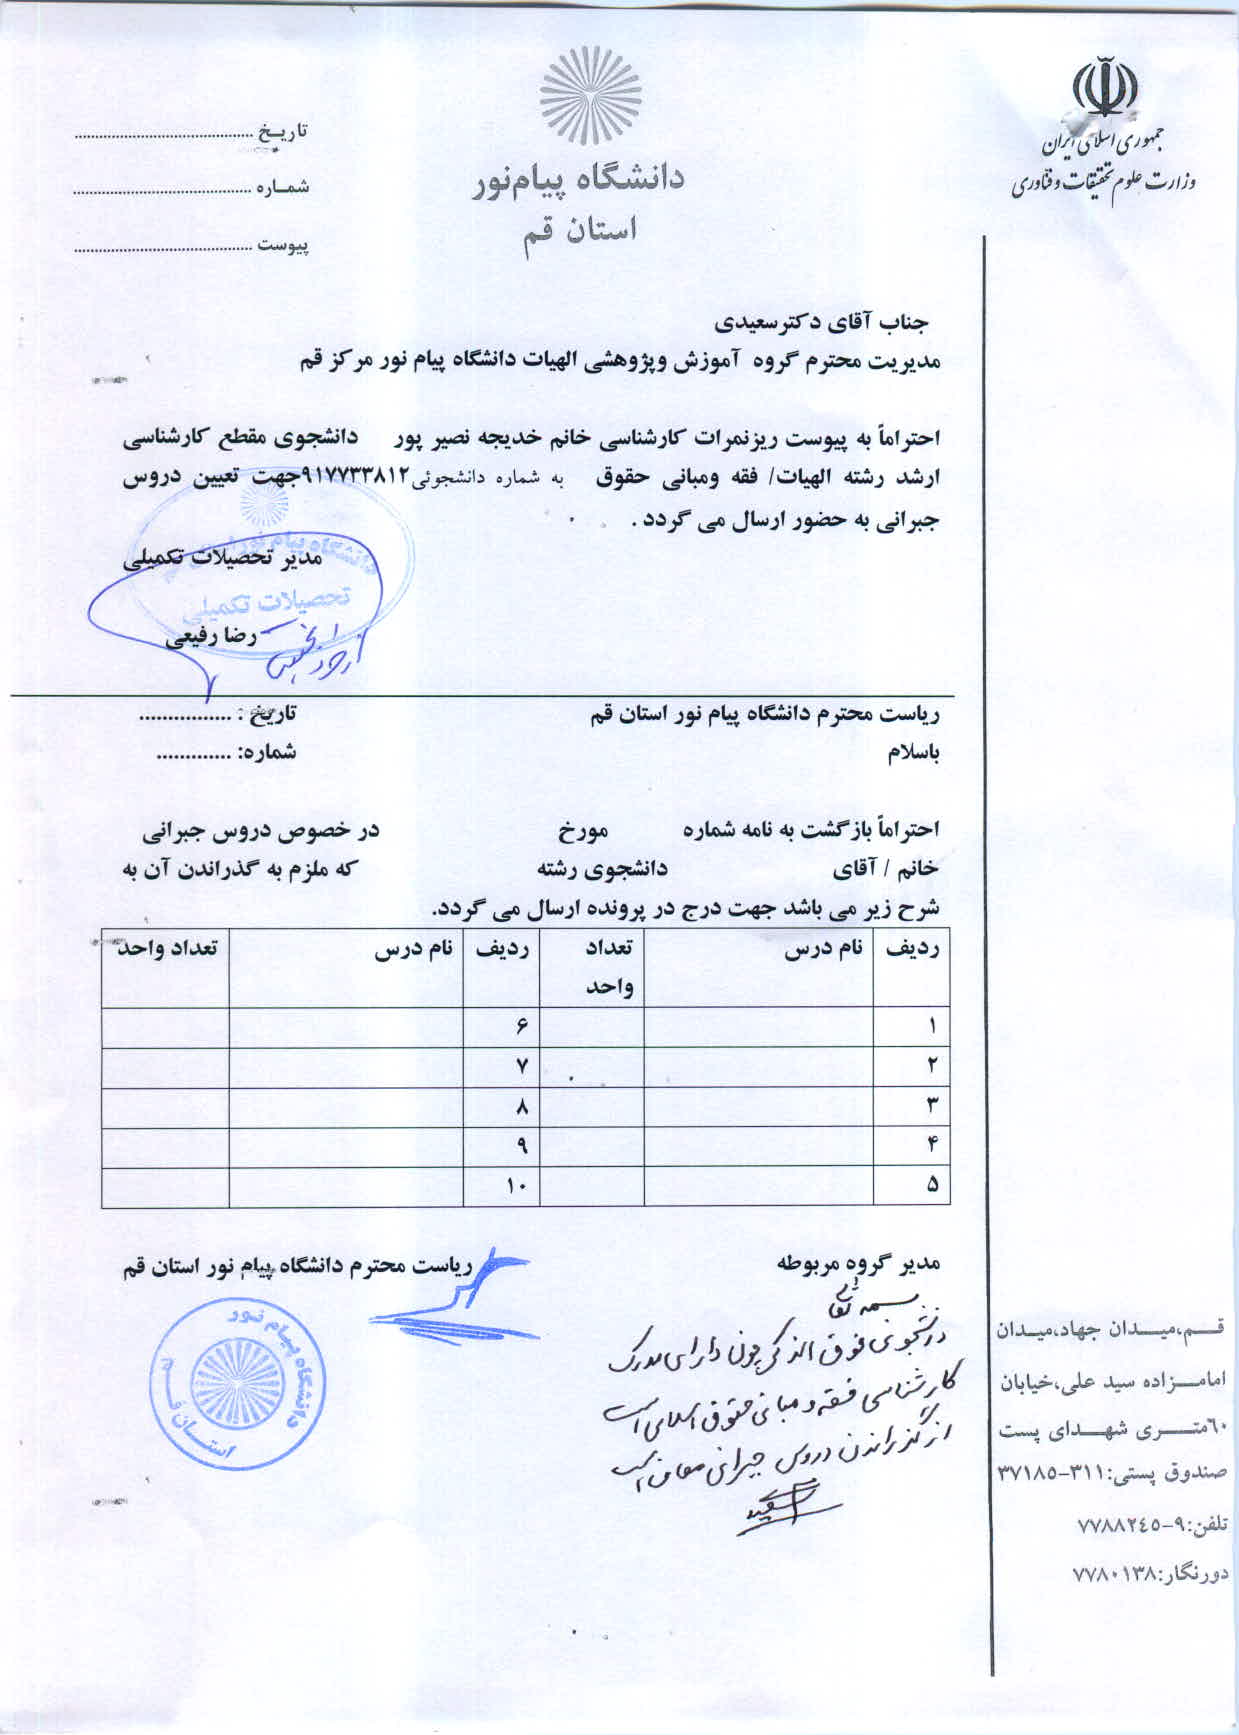 جمهوری اسلامی ایران
وزارت علوم تحقیقات و فناوری
دانشگاه پیام‌نور
استان قم
تاریـخ ............................................
شمـاره ............................................
پیوست ............................................
جناب آقای دکترسعیدی
مدیریت محترم گروه آموزش وپژوهشی الهیات دانشگاه پیام نور مرکز قم
احتراماً به پیوست ریزنمرات کارشناسی خانم خدیجه نصیر پور دانشجوی مقطع کارشناسی
ارشد رشته الهیات/ فقه ومبانی حقوق به شماره دانشجوئی۹۱۷۷۳۳۸۱۲جهت تعیین دروس
جبرانی به حضور ارسال می گردد .
مدیر تحصیلات تکمیلی
تحصیلات تکمیلی
رضا رفیعی
ریاست محترم دانشگاه پیام نور استان قم تاریخ : ................
باسلام شماره: .............
احتراماً بازگشت به نامه شماره مورخ در خصوص دروس جبرانی
خانم / آقای دانشجوی رشته که ملزم به گذراندن آن به
شرح زیر می باشد جهت درج در پرونده ارسال می گردد.
ردیف نام درس تعداد واحد ردیف نام درس تعداد واحد
۱ ۶
۲ ۷
۳ ۸
۴ ۹
۵ ۱۰
مدیر گروه مربوطه ریاست محترم دانشگاه پیام نور استان قم
بسمه تعالی
دانشجوی فوق الذکر چون دارای مدرک
کارشناسی فقه و مبانی حقوق اسلامی است
از گذراندن دروس جبرانی معاف است
دانشگاه پیام نور
استان قم
قـم،میـدان جهاد،میـدان
امامـزاده سید علی،خیابان
٦٠متـری شهـدای پست
صندوق پستی:٣١١-٣٧١٨٥
تلفن:٩-٧٧٨٨٢٤٥
دورنگار:٧٧٨٠١٣٨